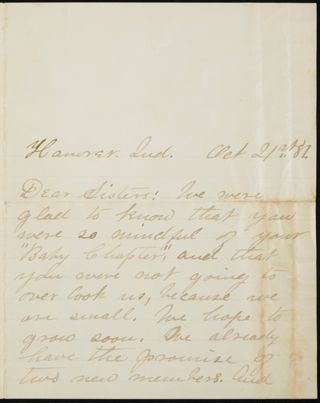 Hanover. Ind. Oct 21st 81.
Dear Sisters: We were
glad to know that you
were so mindful of your
"Baby Chapter," and that
you were not going to
over look us, because we
are small. We hope to
grow soon. We already
have the promise of
two new members. And